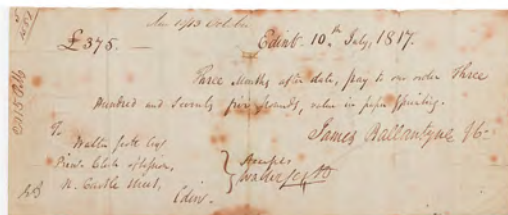 £375.— Edinb. 10.th July, 1817.
Three Months after date, pay to our order Three
Hundred and Seventy five pounds, value in paper & printing.
James Ballantyne & Co.
To
Walter Scott Esq.
Clerk of Session,
N. Castle Street,
Edinr.
Accepts
Walter Scott